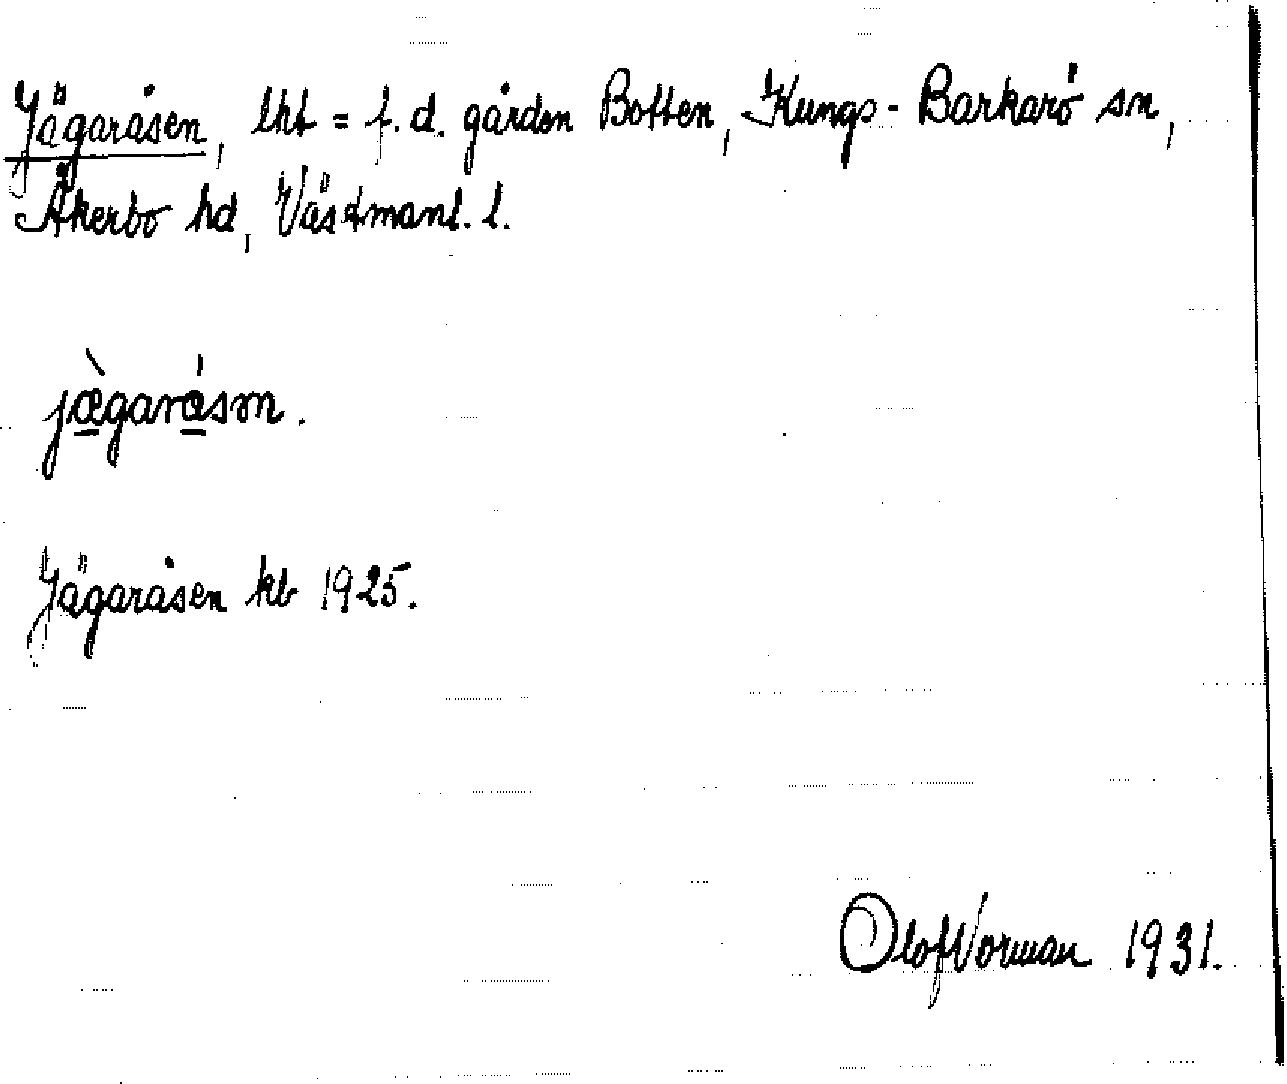 Jägaråsen, lht = f. d. gården Botten, Kungs-Barkarö sn,
Åkerbo hd, Västmanl. l.
jæ̀garåsm.
Jägaråsen kb 1925.
Olof Norman 1931.